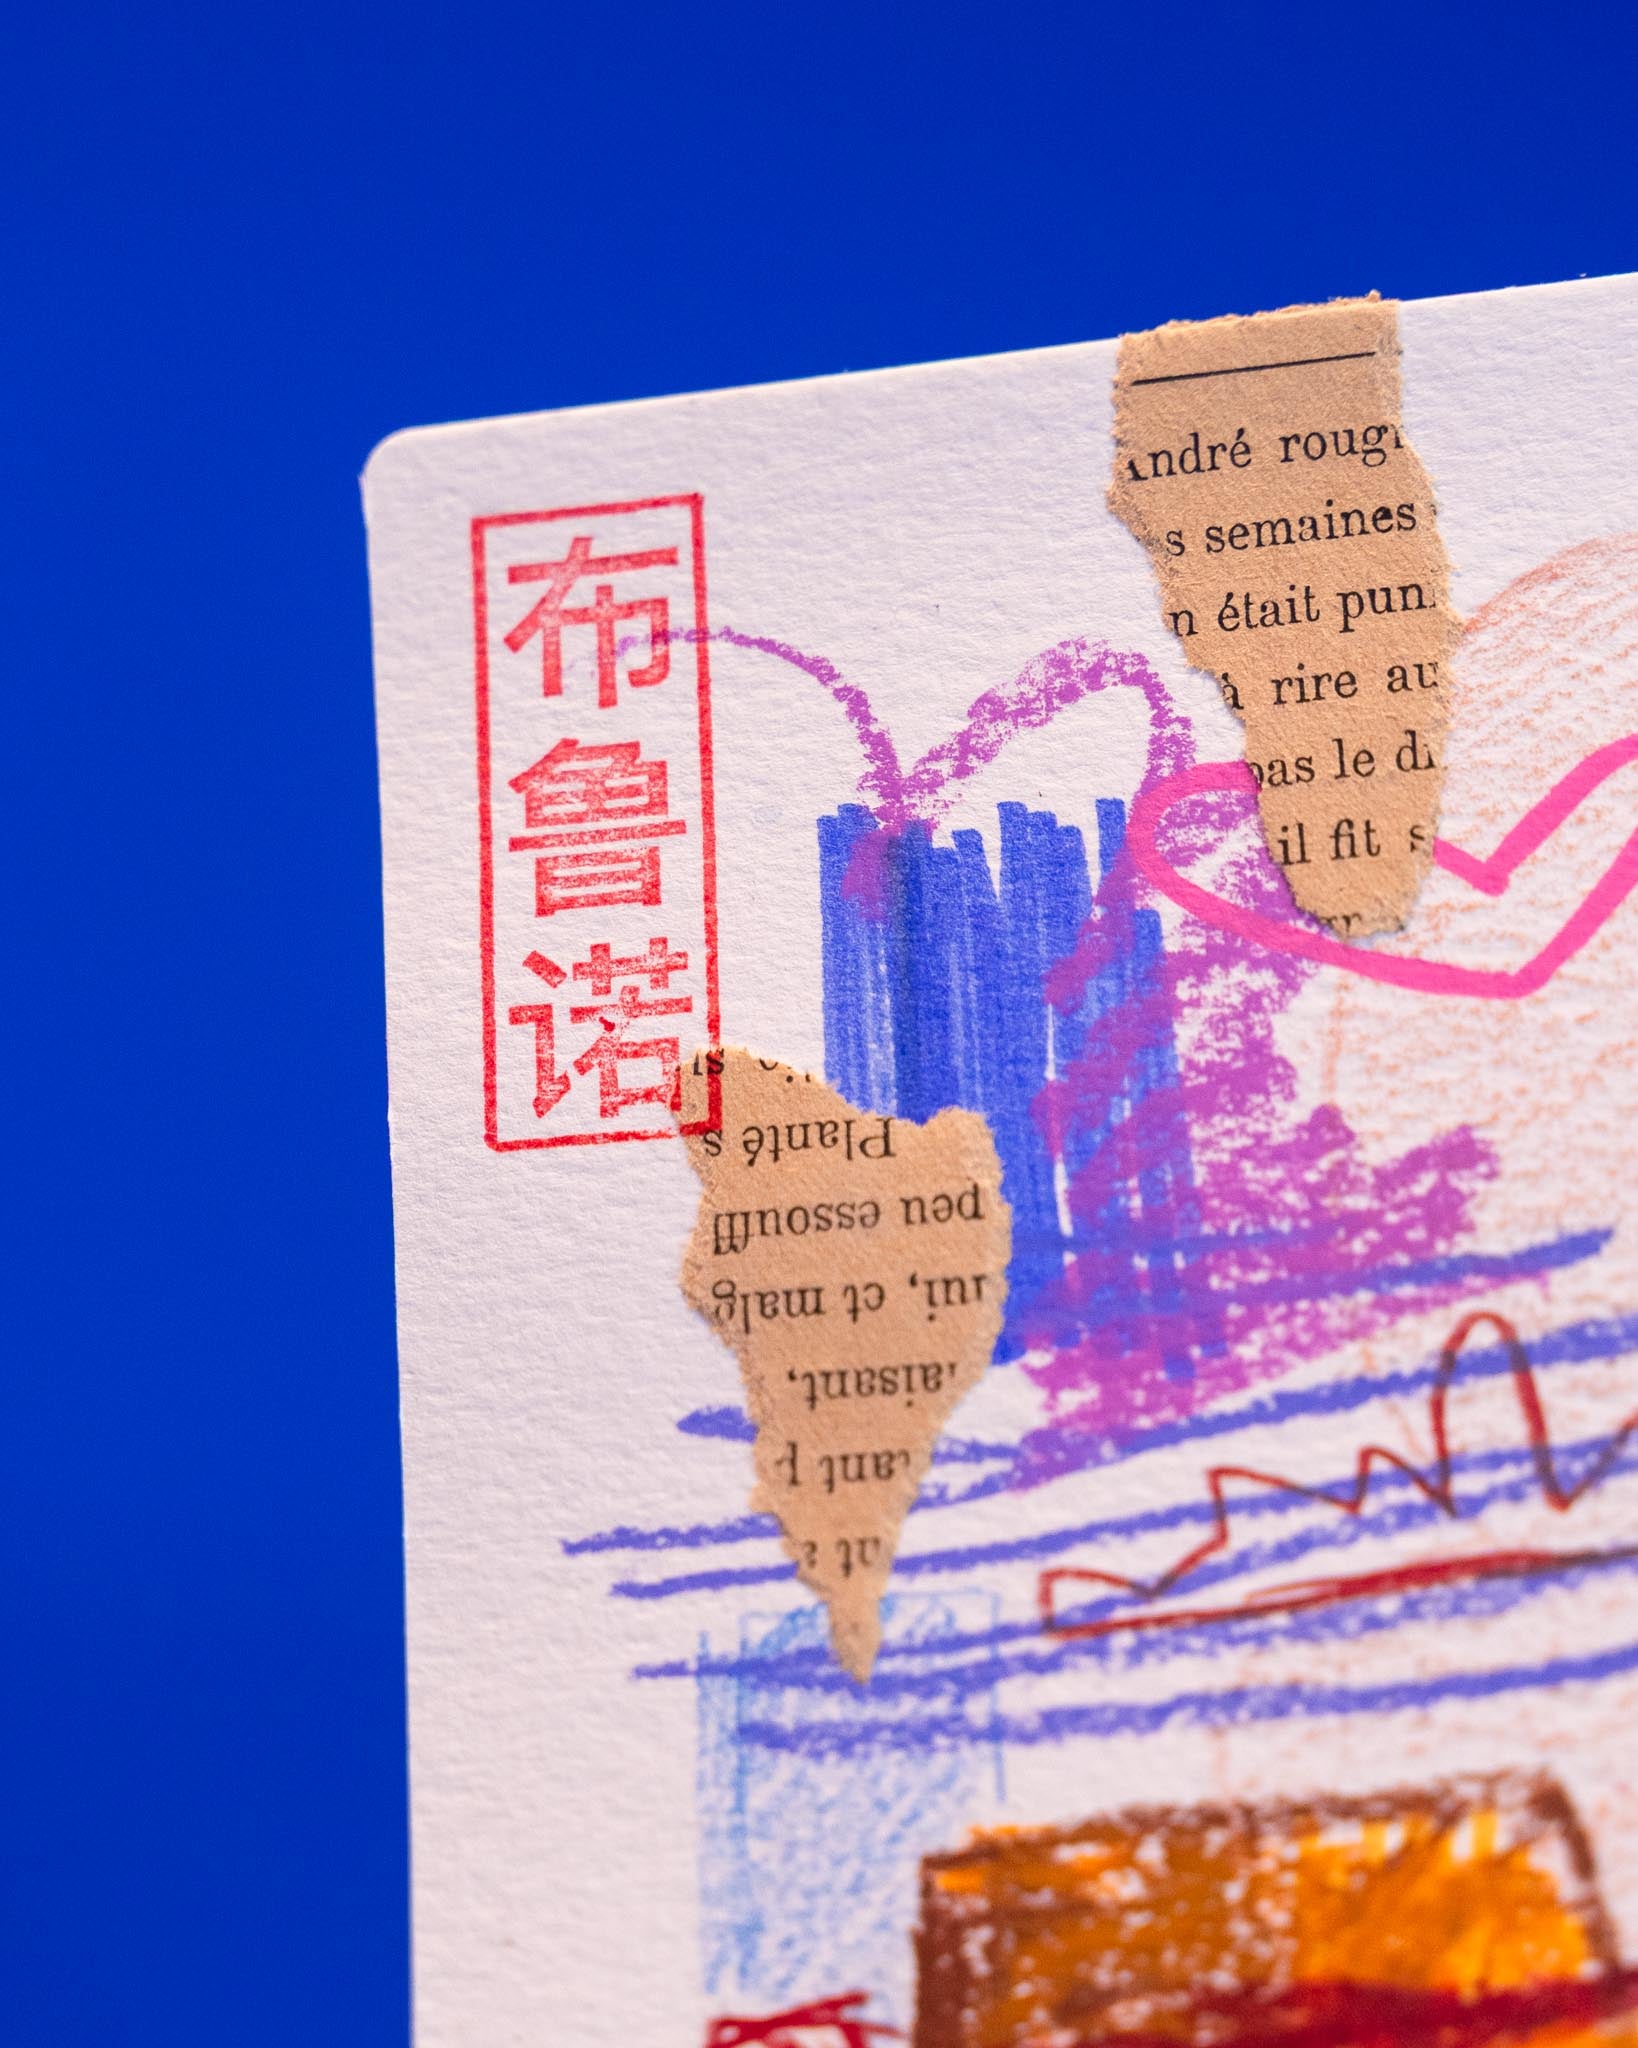 布鲁诺
André roug
s semaines
n était pun
à rire au
pas le di
il fit s
Planté s
peu essouffl
lui, et malg
aisant,
tant p
nt a